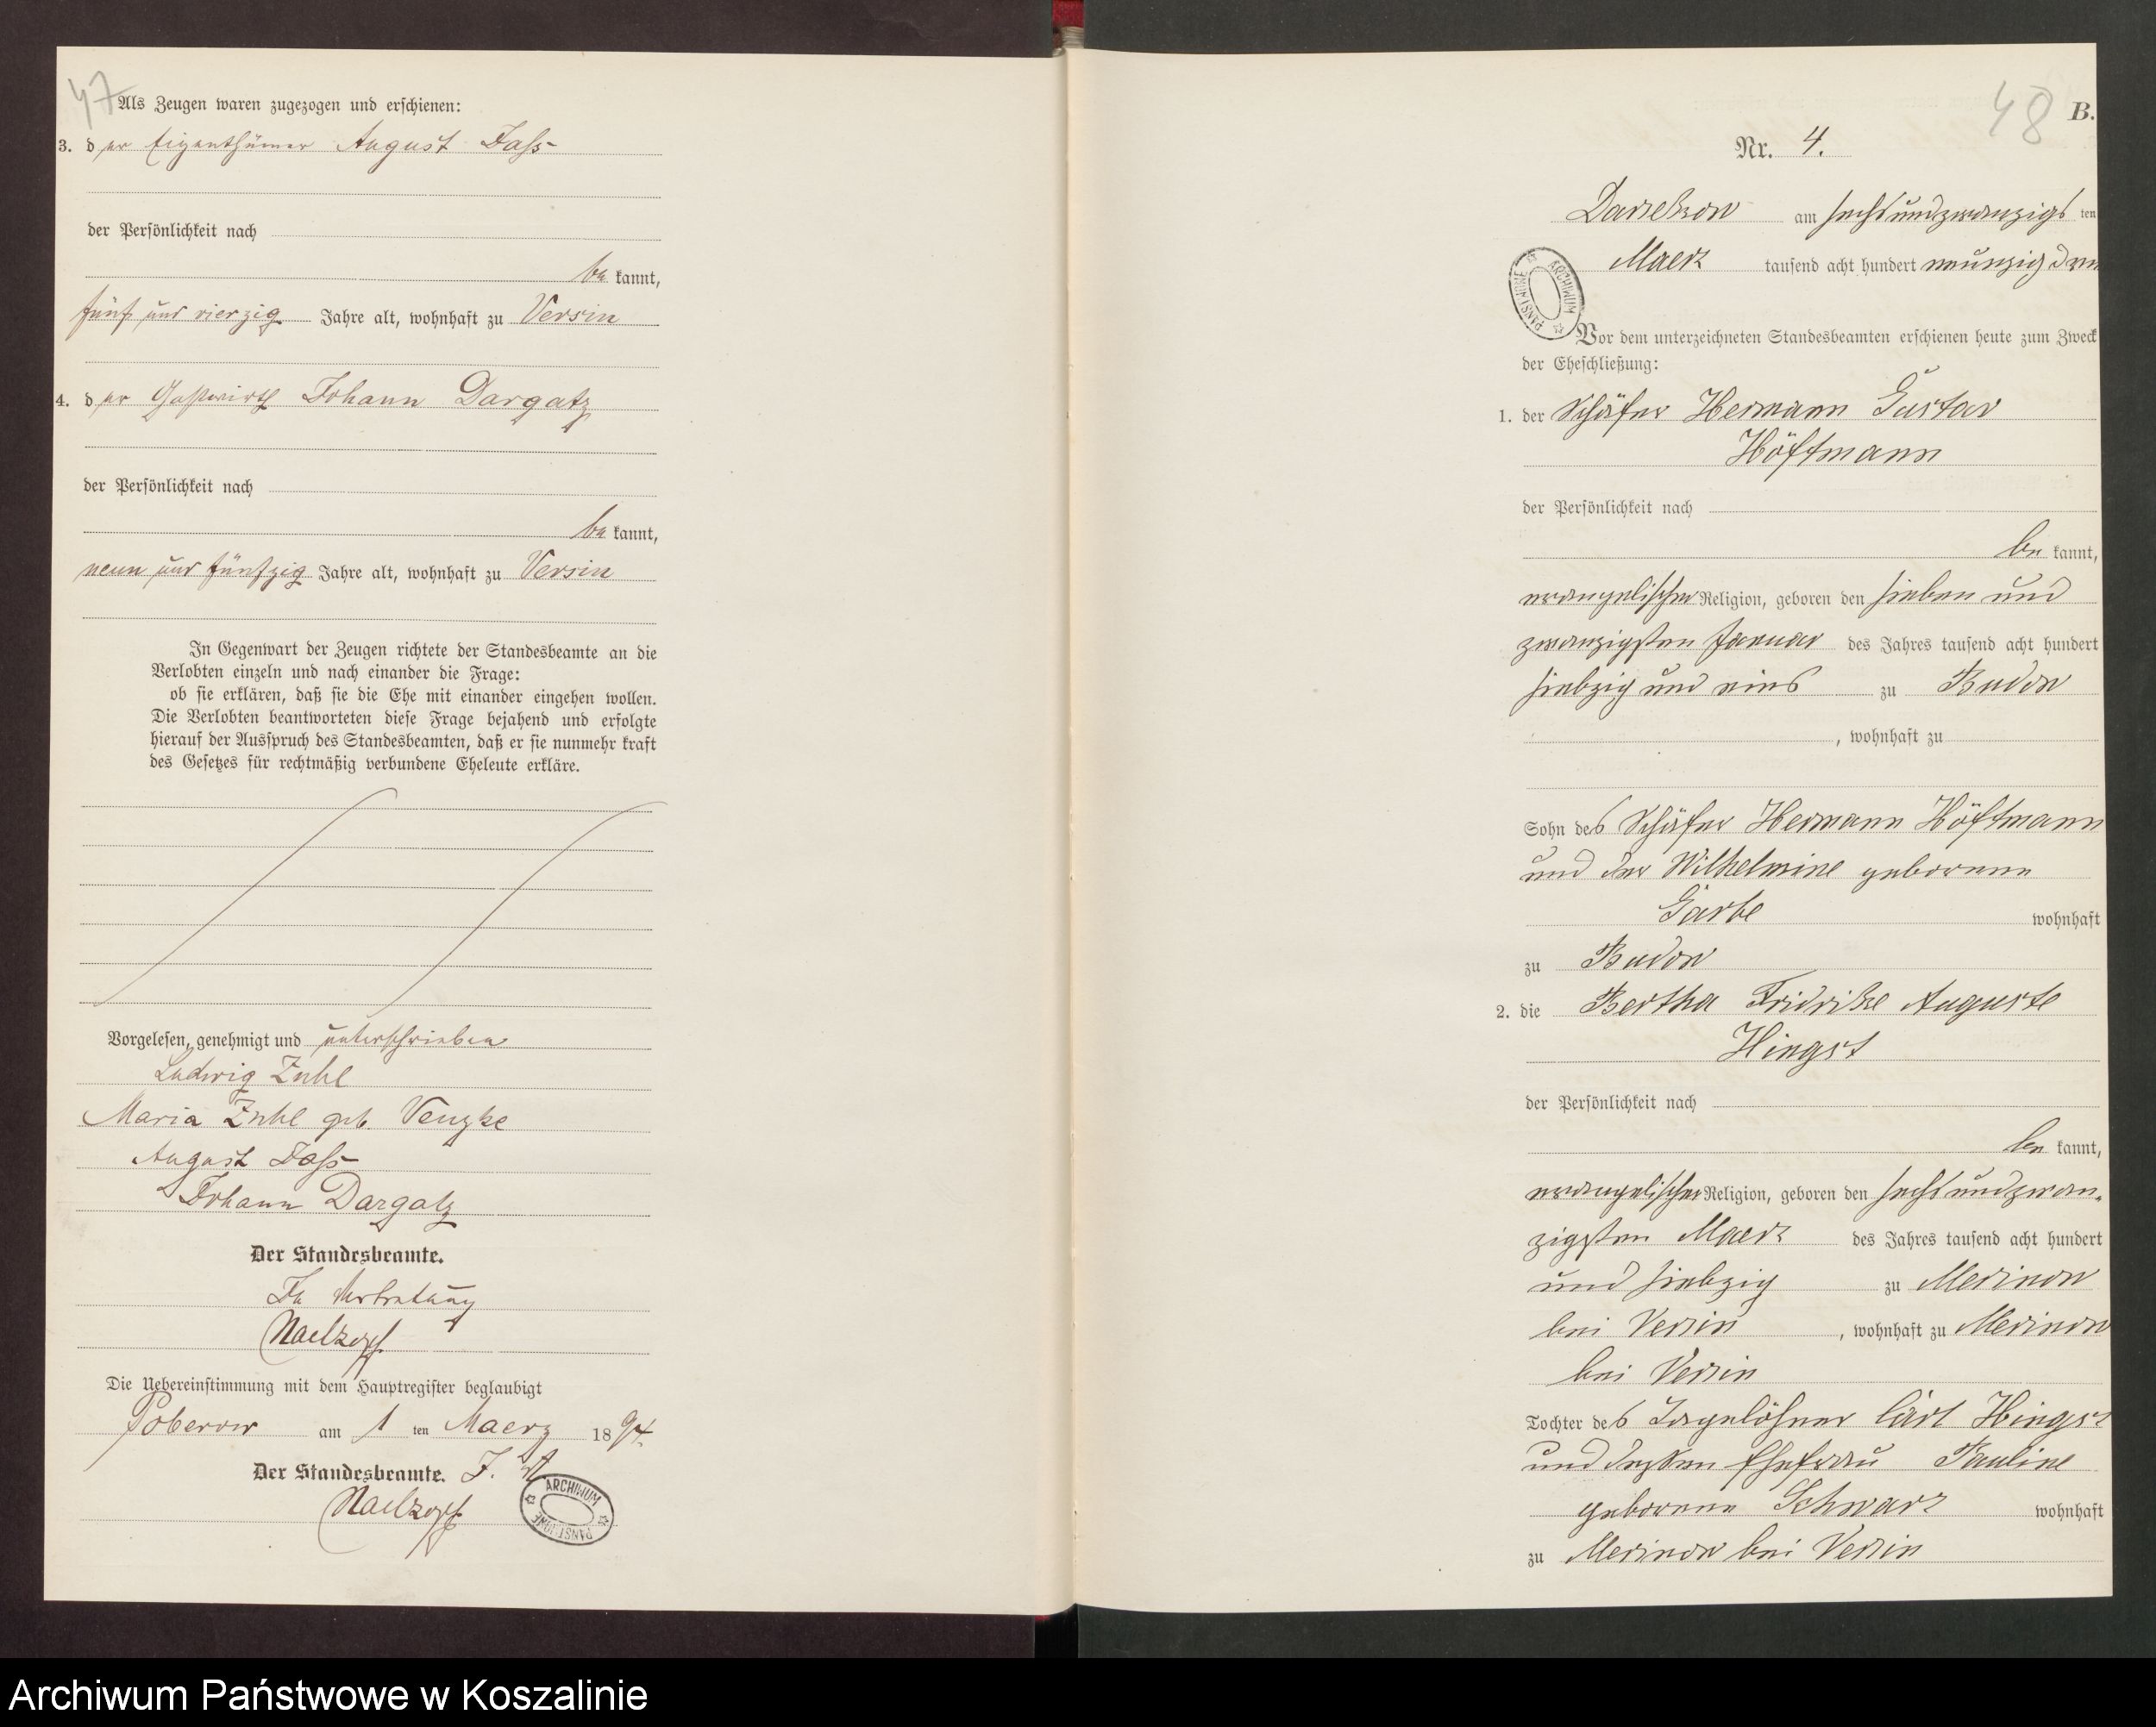 47
Als Zeugen waren zugezogen und erschienen:
3. der Eigenthümer August Fass
der Persönlichkeit nach
be kannt,
fünf und vierzig Jahre alt, wohnhaft zu Versin
4. der Gastwirth Johann Dargatz
der Persönlichkeit nach
be kannt,
neun und fünfzig Jahre alt, wohnhaft zu Versin
In Gegenwart der Zeugen richtete der Standesbeamte an die
Verlobten einzeln und nach einander die Frage:
ob sie erklären, daß sie die Ehe mit einander eingehen wollen.
Die Verlobten beantworteten diese Frage bejahend und erfolgte
hierauf der Ausspruch des Standesbeamten, daß er sie nunmehr kraft
des Gesetzes für rechtmäßig verbundene Eheleute erkläre.
Vorgelesen, genehmigt und unterschrieben
Ludwig
Maria geb. Venzke
August Fass
Johann Dargatz
Der Standesbeamte.
In Vertretung
Die Uebereinstimmung mit dem Hauptregister beglaubigt
Poberow am 1 ten Maerz 1894.
Der Standesbeamte. J. V.
ARCHIWUM PAŃSTWOWE
48
B.
Nr. 4.
Darsekow am sechsundzwanzigs ten
Maerz tausend acht hundert neunzig drei
ARCHIWUM PAŃSTWOWE
Vor dem unterzeichneten Standesbeamten erschienen heute zum Zweck
der Eheschließung:
1. der Schäfer Hermann Gustav
Höftmann
der Persönlichkeit nach
be kannt,
evangelischer Religion, geboren den sieben und
zwanzigsten Januar des Jahres tausend acht hundert
siebzig und eins zu Budow
, wohnhaft zu
Sohn des Schäfer Hermann Höftmann
und der Wilhelmine geborene
Garbe wohnhaft
zu Budow
2. die Bertha Fridrike Auguste
Hingst
der Persönlichkeit nach
be kannt,
evangelischer Religion, geboren den sechsundzwan-
zigsten Maerz des Jahres tausend acht hundert
und siebzig zu Merinow
bei Versin , wohnhaft zu Merinow
bei Versin
Tochter des Tagelöhner Carl Hingst
und dessen Ehefrau Pauline
geborene Schwarz wohnhaft
zu Merinow bei Versin
Archiwum Państwowe w Koszalinie